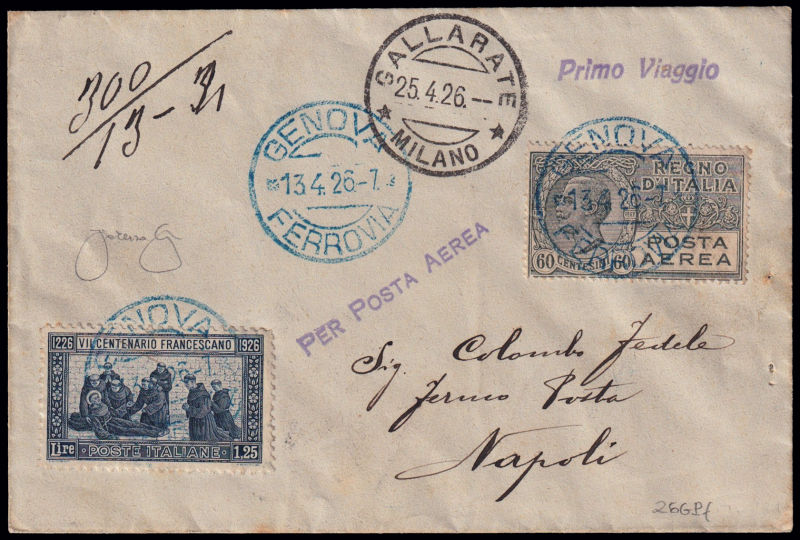 300
13-31
GALLARATE
25.4.26.-
MILANO
Primo Viaggio
GENOVA
13.4.26-7
FERROVIA
GENOVA
13.4.26-7
REGNO
D'ITALIA
POSTA
AEREA
60 CENTESIMI 60
PER POSTA AEREA
GENOVA
1226 VII CENTENARIO FRANCESCANO 1926
Lire POSTE ITALIANE 1,25
Sig. Colombo Fedele
Fermo Posta
Napoli